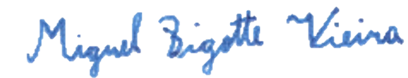 Miguel Bigotte Vieira